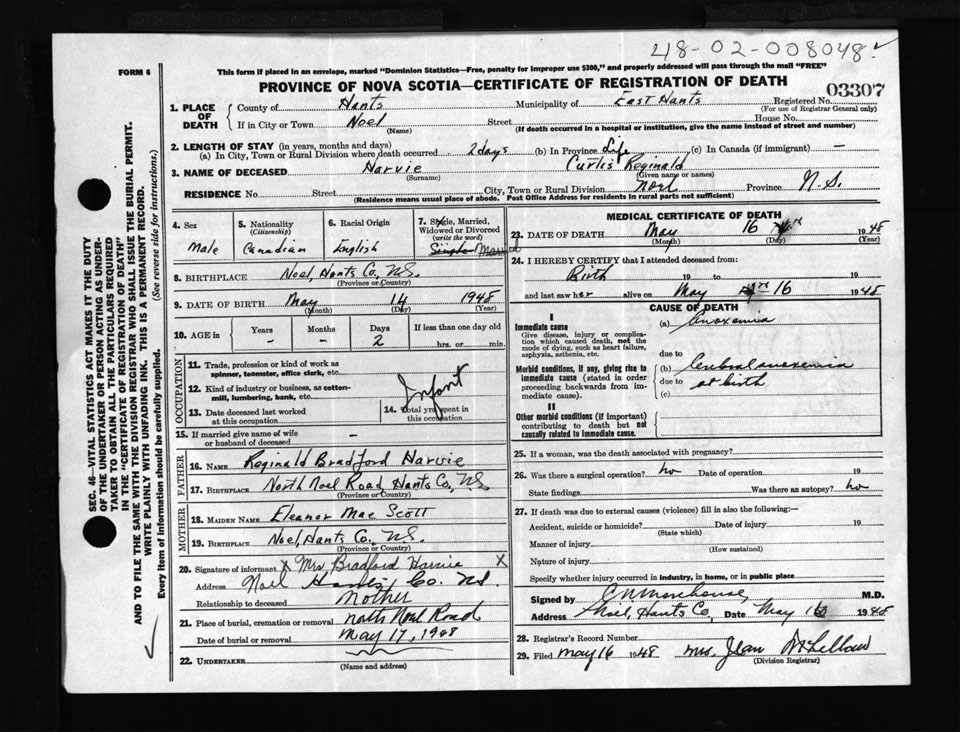 48-02-008048
FORM 6
This form if placed in an envelope, marked "Dominion Statistics—Free, penalty for improper use $300," and properly addressed will pass through the mail "FREE"
PROVINCE OF NOVA SCOTIA—CERTIFICATE OF REGISTRATION OF DEATH
03307
1. PLACE OF DEATH
County of Hants Municipality of East Hants Registered No.
(For use of Registrar General only)
If in City or Town Noel Street House No.
(Name) (If death occurred in a hospital or institution, give the name instead of street and number)
2. LENGTH OF STAY (in years, months and days)
(a) In City, Town or Rural Division where death occurred 2 days (b) In Province Life (c) In Canada (if immigrant) —
3. NAME OF DECEASED Harvie Curtis Reginald
(Surname) (Given name or names)
RESIDENCE No. Street City, Town or Rural Division Noel Province N.S.
(Residence means usual place of abode. Post Office Address for residents in rural parts not sufficient)
4. Sex
Male
5. Nationality
(Citizenship)
Canadian
6. Racial Origin
English
7. Single, Married, Widowed or Divorced
(write the word)
Single Married
8. BIRTHPLACE Noel, Hants Co., N.S.
(Province or Country)
9. DATE OF BIRTH May 14 1948
(Month) (Day) (Year)
10. AGE in Years Months Days If less than one day old
- - 2 hrs. or min.
OCCUPATION
11. Trade, profession or kind of work as spinner, teamster, office clerk, etc.
12. Kind of industry or business, as cotton-mill, lumbering, bank, etc.
Infant
13. Date deceased last worked at this occupation
14. Total yrs. spent in this occupation
15. If married give name of wife or husband of deceased —
FATHER
16. NAME Reginald Bradford Harvie
17. BIRTHPLACE North Noel Road, Hants Co., N.S
(Province or Country)
MOTHER
18. MAIDEN NAME Eleanor Mae Scott
19. BIRTHPLACE Noel, Hants Co., N.S.
(Province or Country)
20. Signature of informant X Mrs Bradford Harvie X
Address Noel Hants Co. N.S.
Relationship to deceased Mother
21. Place of burial, cremation or removal North Noel Road
Date of burial or removal May 17, 1948
22. UNDERTAKER
(Name and address)
MEDICAL CERTIFICATE OF DEATH
23. DATE OF DEATH May 16 1948
(Month) (Day) (Year)
24. I HEREBY CERTIFY that I attended deceased from:
Birth 19 to 19
and last saw her alive on May 16 1948
CAUSE OF DEATH
I
Immediate cause
Give disease, injury or complication which caused death, not the mode of dying, such as heart failure, asphyxia, asthenia, etc.
(a) Anoxemia
due to
Morbid conditions, if any, giving rise to immediate cause (stated in order proceeding backwards from immediate cause).
(b) Cerebral anoxemia
due to at birth
(c)
II
Other morbid conditions (if important) contributing to death but not causally related to immediate cause.
25. If a woman, was the death associated with pregnancy?
26. Was there a surgical operation? no Date of operation 19
State findings Was there an autopsy? no
27. If death was due to external causes (violence) fill in also the following:—
Accident, suicide or homicide? Date of injury 19
(State which)
Manner of injury
(How sustained)
Nature of injury
Specify whether injury occurred in industry, in home, or in public place
Signed by E N Morehouse M.D.
Address Noel, Hants Co, Date May 16 1948
28. Registrar's Record Number
29. Filed May 16 1948 Mrs. Jean McLellan
(Division Registrar)
SEC. 46—VITAL STATISTICS ACT MAKES IT THE DUTY
OF THE UNDERTAKER OR PERSON ACTING AS UNDER-
TAKER TO OBTAIN ALL THE PARTICULARS REQUIRED
IN THE "CERTIFICATE OF REGISTRATION OF DEATH"
AND TO FILE THE SAME WITH THE DIVISION REGISTRAR WHO SHALL ISSUE THE BURIAL PERMIT.
WRITE PLAINLY WITH UNFADING INK. THIS IS A PERMANENT RECORD.
Every item of information should be carefully supplied. (See reverse side for instructions.)